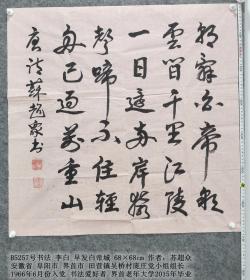 朝辭白帝彩
雲間千里江陵
一日還兩岸猿
聲啼不住輕
舟已過萬重山
唐诗蘇超眾書
B5257号书法 李白 早发白帝城 68×68cm 作者：苏超众
安徽省 阜阳市 界首市 田营镇吴桥村庞庄党小组组长
1966年6月份入党 书法爱好者 界首老年大学2015年毕业